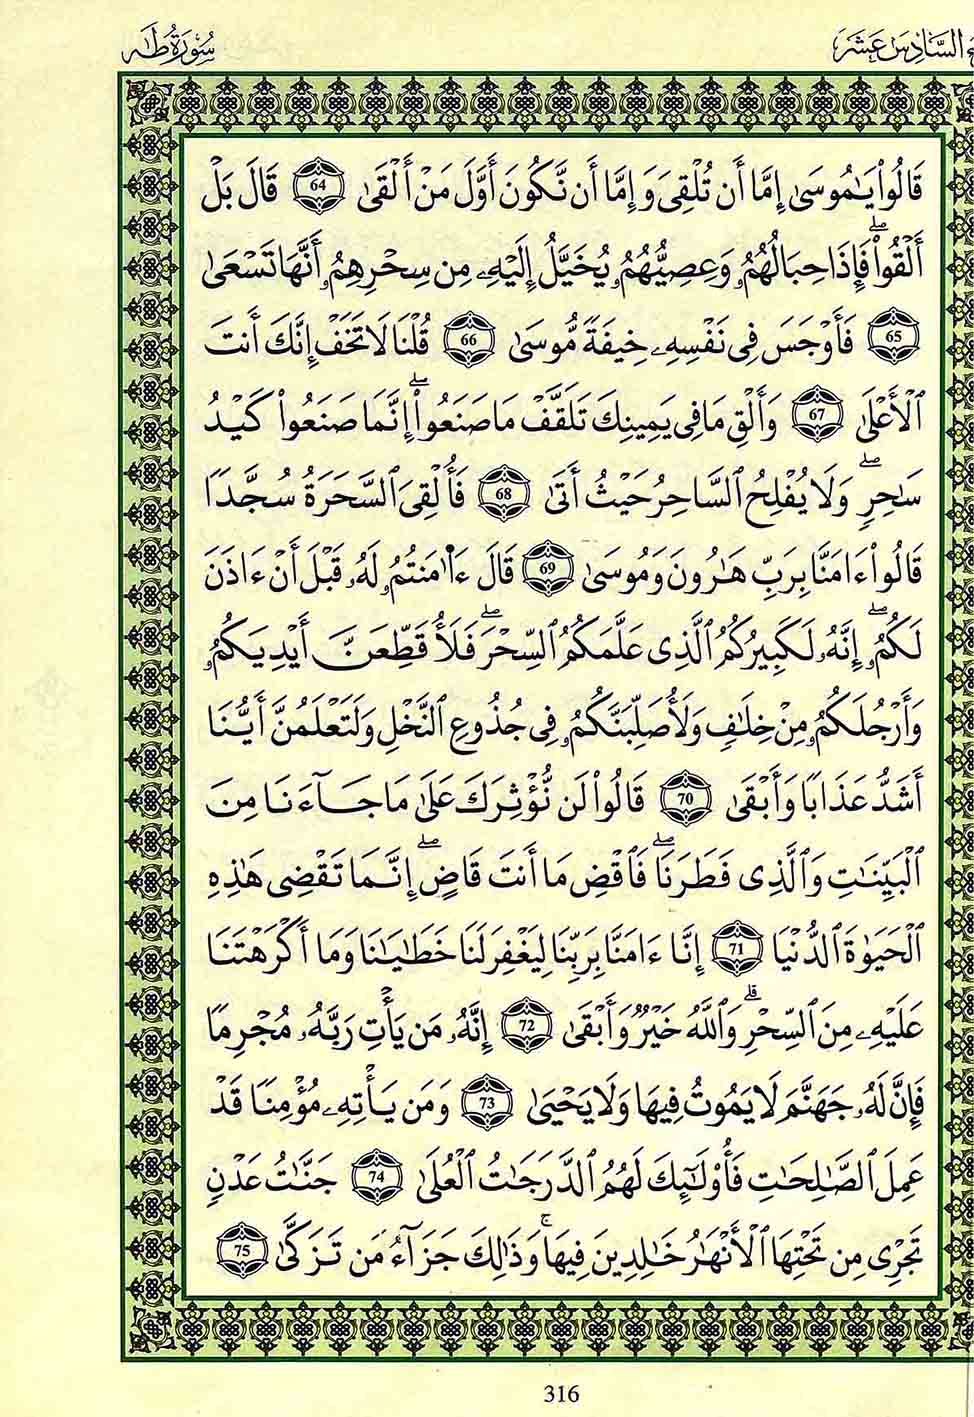 السَّادِسَ عَشَرَ سُورَةُ طَهَ
قَالُواْ يَٰمُوسَىٰ إِمَّا أَن تُلْقِىَ وَإِمَّا أَن نَّكُونَ أَوَّلَ مَنْ أَلْقَىٰ 64 قَالَ بَلْ
أَلْقُواْۖ فَإِذَا حِبَالُهُمُۥ وَعِصِيُّهُمُۥ يُخَيَّلُ إِلَيْهِۦ مِن سِحْرِهِمُۥ أَنَّهَا تَسْعَىٰ
65 فَأَوْجَسَ فِى نَفْسِهِۦ خِيفَةً مُّوسَىٰ 66 قُلْنَا لَا تَخَفْ إِنَّكَ أَنتَ
ٱلْأَعْلَىٰ 67 وَأَلْقِ مَا فِى يَمِينِكَ تَلَقَّفْ مَا صَنَعُواْۖ إِنَّمَا صَنَعُواْ كَيْدُ
سَٰحِرٍۖ وَلَا يُفْلِحُ ٱلسَّاحِرُ حَيْثُ أَتَىٰ 68 فَأُلْقِىَ ٱلسَّحَرَةُ سُجَّدًا
قَالُواْ ءَامَنَّا بِرَبِّ هَٰرُونَ وَمُوسَىٰ 69 قَالَ ءَا۬مَنتُمُۥ لَهُۥ قَبْلَ أَنْ ءَاذَنَ
لَكُمُۥۖ إِنَّهُۥ لَكَبِيرُكُمُ ٱلَّذِى عَلَّمَكُمُ ٱلسِّحْرَۖ فَلَأُقَطِّعَنَّ أَيْدِيَكُمُۥ
وَأَرْجُلَكُمُۥ مِنْ خِلَٰفٍ وَلَأُصَلِّبَنَّكُمُۥ فِى جُذُوعِ ٱلنَّخْلِ وَلَتَعْلَمُنَّ أَيُّنَا
أَشَدُّ عَذَابًا وَأَبْقَىٰ 70 قَالُواْ لَن نُّؤْثِرَكَ عَلَىٰ مَا جَآءَنَا مِنَ
ٱلْبَيِّنَٰتِ وَٱلَّذِى فَطَرَنَاۖ فَٱقْضِ مَا أَنتَ قَاضٍۖ إِنَّمَا تَقْضِى هَٰذِهِ
ٱلْحَيَوٰةَ ٱلدُّنْيَا 71 إِنَّا ءَامَنَّا بِرَبِّنَا لِيَغْفِرَ لَنَا خَطَٰيَٰنَا وَمَا أَكْرَهْتَنَا
عَلَيْهِۦ مِنَ ٱلسِّحْرِۗ وَٱللَّهُ خَيْرٌ وَأَبْقَىٰ 72 إِنَّهُۥ مَن يَأْتِ رَبَّهُۥ مُجْرِمًا
فَإِنَّ لَهُۥ جَهَنَّمَ لَا يَمُوتُ فِيهَا وَلَا يَحْيَىٰ 73 وَمَن يَأْتِهِۦ مُؤْمِنًا قَدْ
عَمِلَ ٱلصَّٰلِحَٰتِ فَأُوْلَٰٓئِكَ لَهُمُ ٱلدَّرَجَٰتُ ٱلْعُلَىٰ 74 جَنَّٰتُ عَدْنٍ
تَجْرِى مِن تَحْتِهَا ٱلْأَنْهَٰرُ خَٰلِدِينَ فِيهَاۚ وَذَٰلِكَ جَزَآءُ مَن تَزَكَّىٰ 75
316